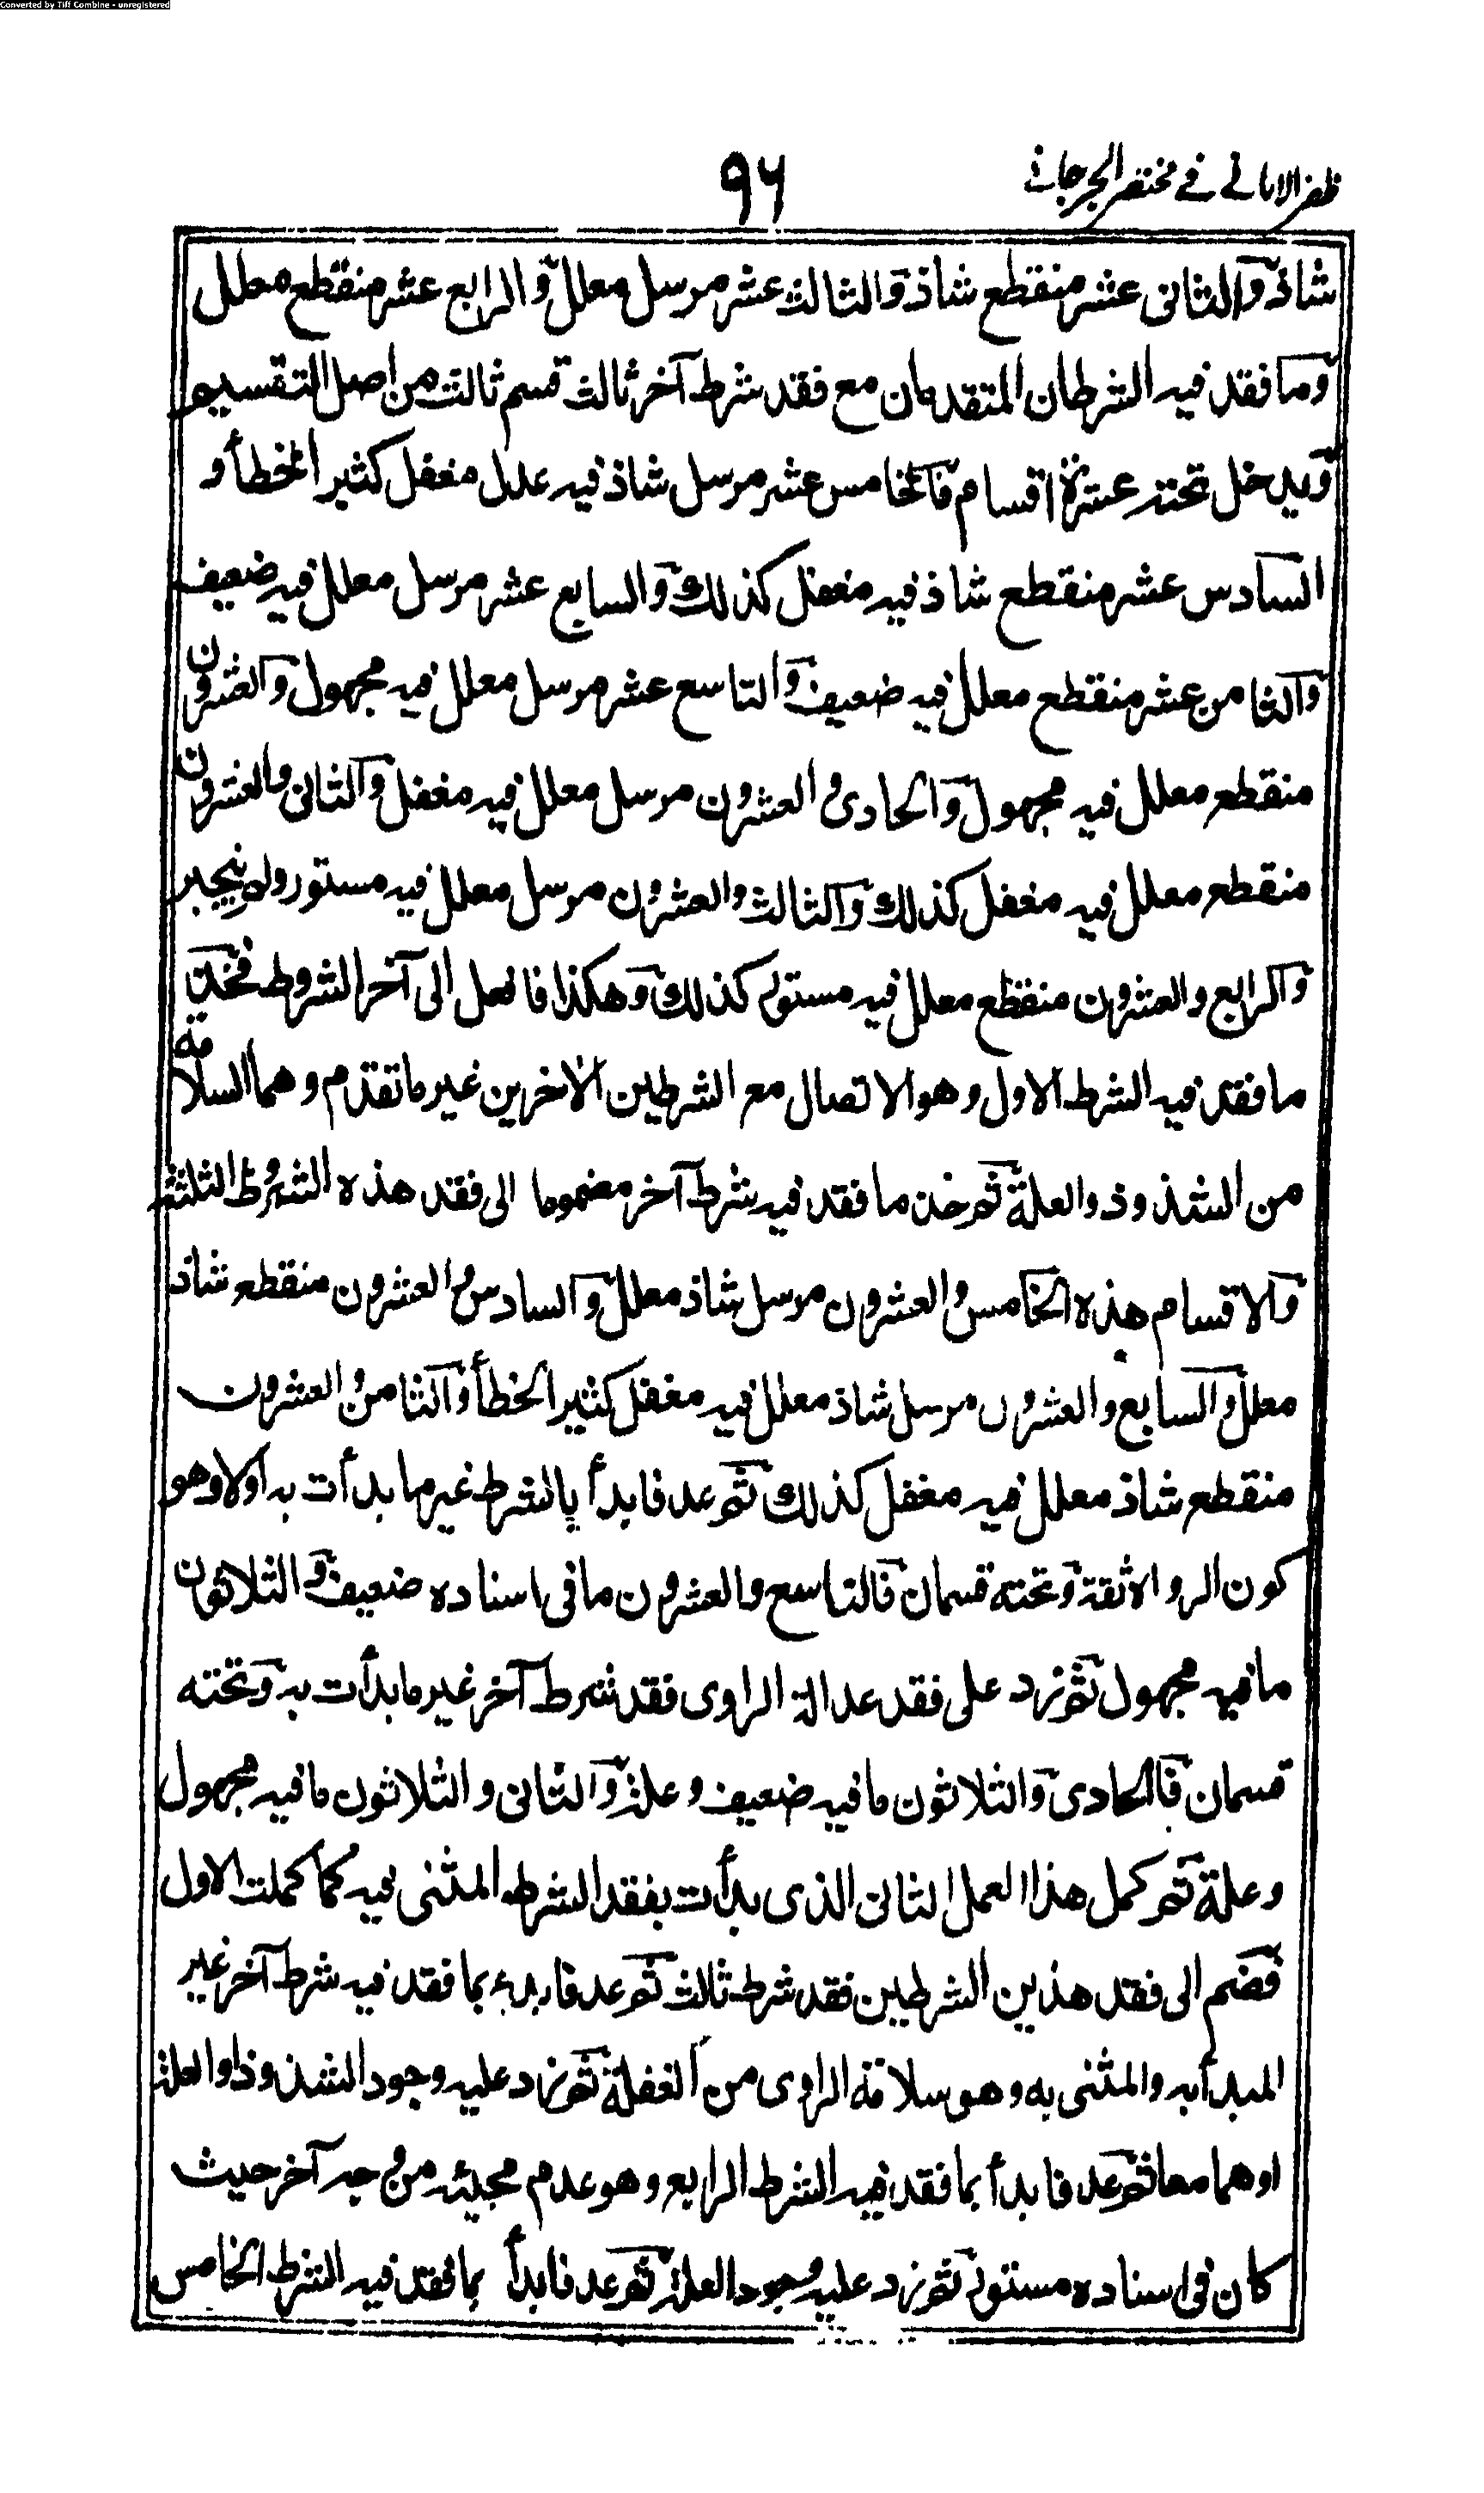 Converted by Tiff Combine - unregistered
ظفر الامانی فی مختصر الجرجانی
۹۶
شاذ والثانی عشر منقطع شاذ والثالث عشر مرسل معلل والرابع عشر منقطع معلل
وما فقد فیه الشرطان المتقدمان مع فقد شرط آخر ثالث قسم ثالث من اصل التقسیم
ویدخل تحته عشرة اقسام فالخامس عشر مرسل شاذ فیه عدل مغفل کثیر الخطأ و
السادس عشر منقطع شاذ فیه مغفل کذلك والسابع عشر مرسل معلل فیه ضعیف
والثامن عشر منقطع معلل فیه ضعیف والتاسع عشر مرسل معلل فیه مجهول والعشرون
منقطع معلل فیه مجهول والحادی والعشرون مرسل معلل فیه مغفل والثانی والعشرون
منقطع معلل فیه مغفل کذلك والثالث والعشرون مرسل معلل فیه مستور ولم ینجبر
والرابع والعشرون منقطع معلل فیه مستور کذلك وهکذا فافعل الی آخر الشروط فخذ
ما فقد فیه الشرط الاول وهو الاتصال مع الشرطین الآخرین غیر ما تقدم وهما السلامة
من الشذوذ والعلة ثم خذ ما فقد فیه شرط آخر مضموما الی فقد هذه الشروط الثلثة
والاقسام هذه الخامس والعشرون مرسل شاذ معلل والسادس والعشرون منقطع شاذ
معلل والسابع والعشرون مرسل شاذ معلل فیه مغفل کثیر الخطأ والثامن والعشرون
منقطع شاذ معلل فیه مغفل کذلك ثم عد فابدأ بالشرط غیر ما بدأت به اولا وهو
کون الرواة ثقة وتحته قسمان فالتاسع والعشرون ما فی اسناده ضعیف والثلاثون
ما فیه مجهول ثم زد علی فقد عدالة الراوی فقد شرط آخر غیر ما بدأت به وتحته
قسمان فالحادی والثلاثون ما فیه ضعیف وعلة والثانی والثلاثون ما فیه مجهول
وعلة ثم کمل هذا العمل الثانی الذی بدأت بفقد الشرط المثنی فیه کما کملت الاول
فضم الی فقد هذین الشرطین فقد شرط ثالث ثم عد فابدء بما فقد فیه شرط آخر غیر
المبدأ به والمثنی به وهو سلامة الراوی من الغفلة ثم زد علیه وجود الشذوذ او العلة
او هما معا ثم عد فابدأ بما فقد فیه الشرط الرابع وهو عدم مجیئه من وجه آخر حیث
کان فی اسناده مستور ثم زد علیه وجود العلة ثم عد فابدأ بما فقد فیه الشرط الخامس